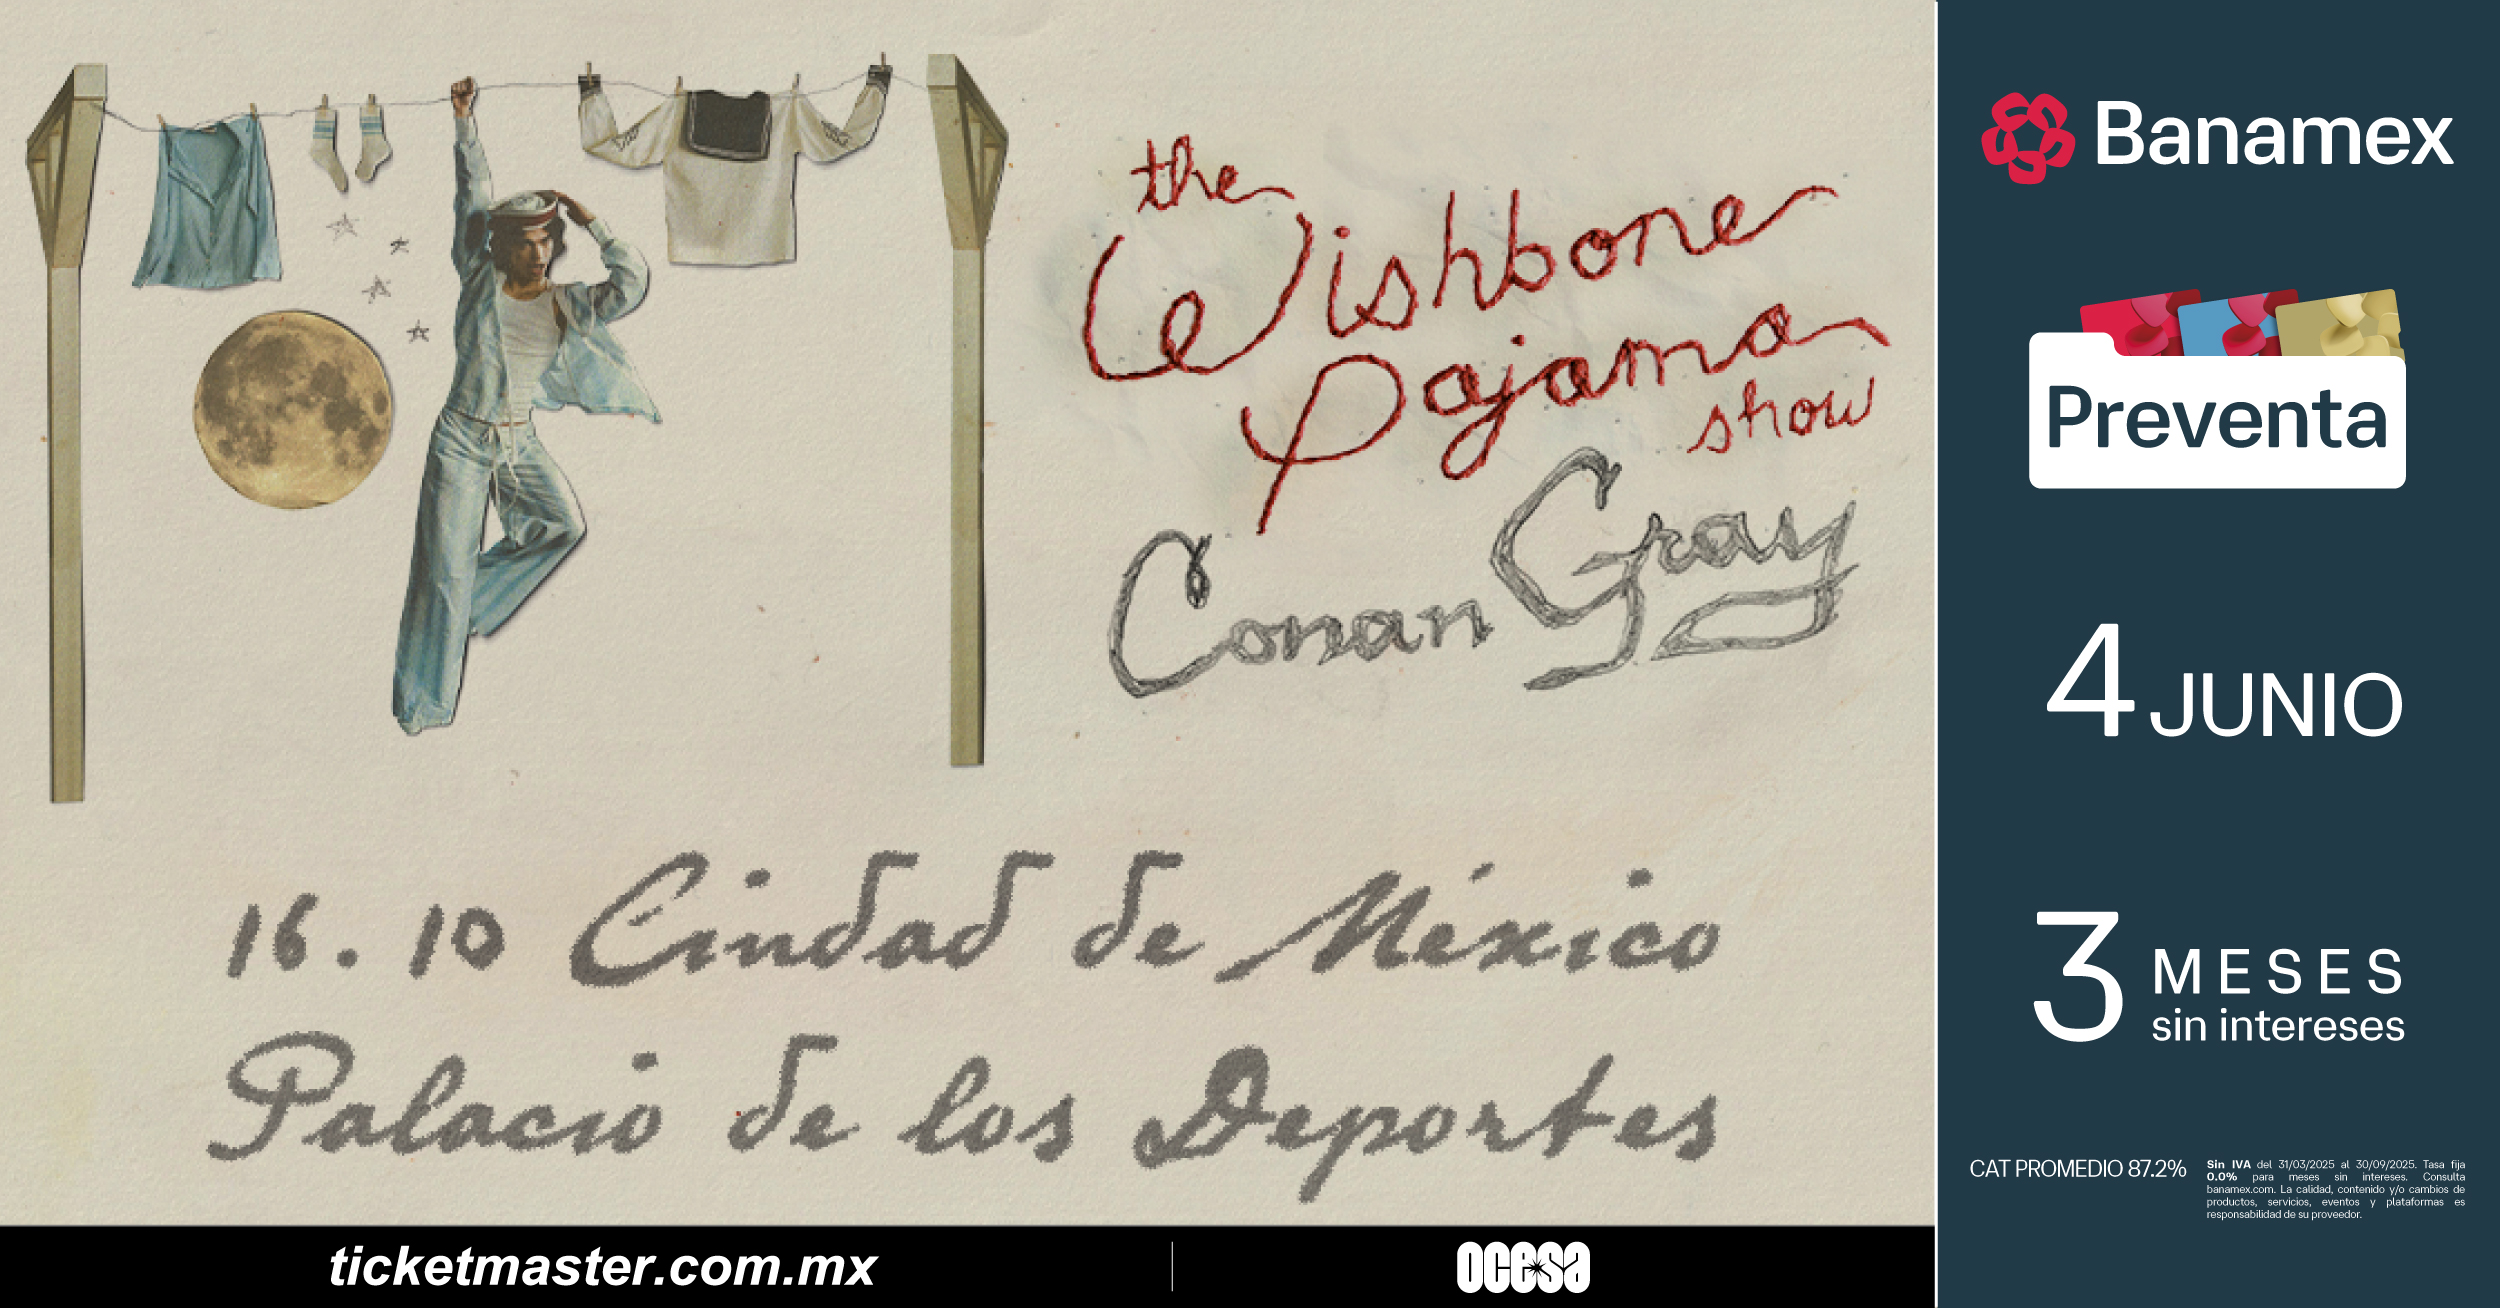 the
Wishbone
Pajama
show
Conan Gray
16.10 Ciudad de México
Palacio de los Deportes
ticketmaster.com.mx
ocesa
Banamex
Preventa
4 JUNIO
3 MESES
sin intereses
CAT PROMEDIO 87.2%
Sin IVA del 31/03/2025 al 30/09/2025. Tasa fija
0.0% para meses sin intereses. Consulta
banamex.com. La calidad, contenido y/o cambios de
productos, servicios, eventos y plataformas es
responsabilidad de su proveedor.